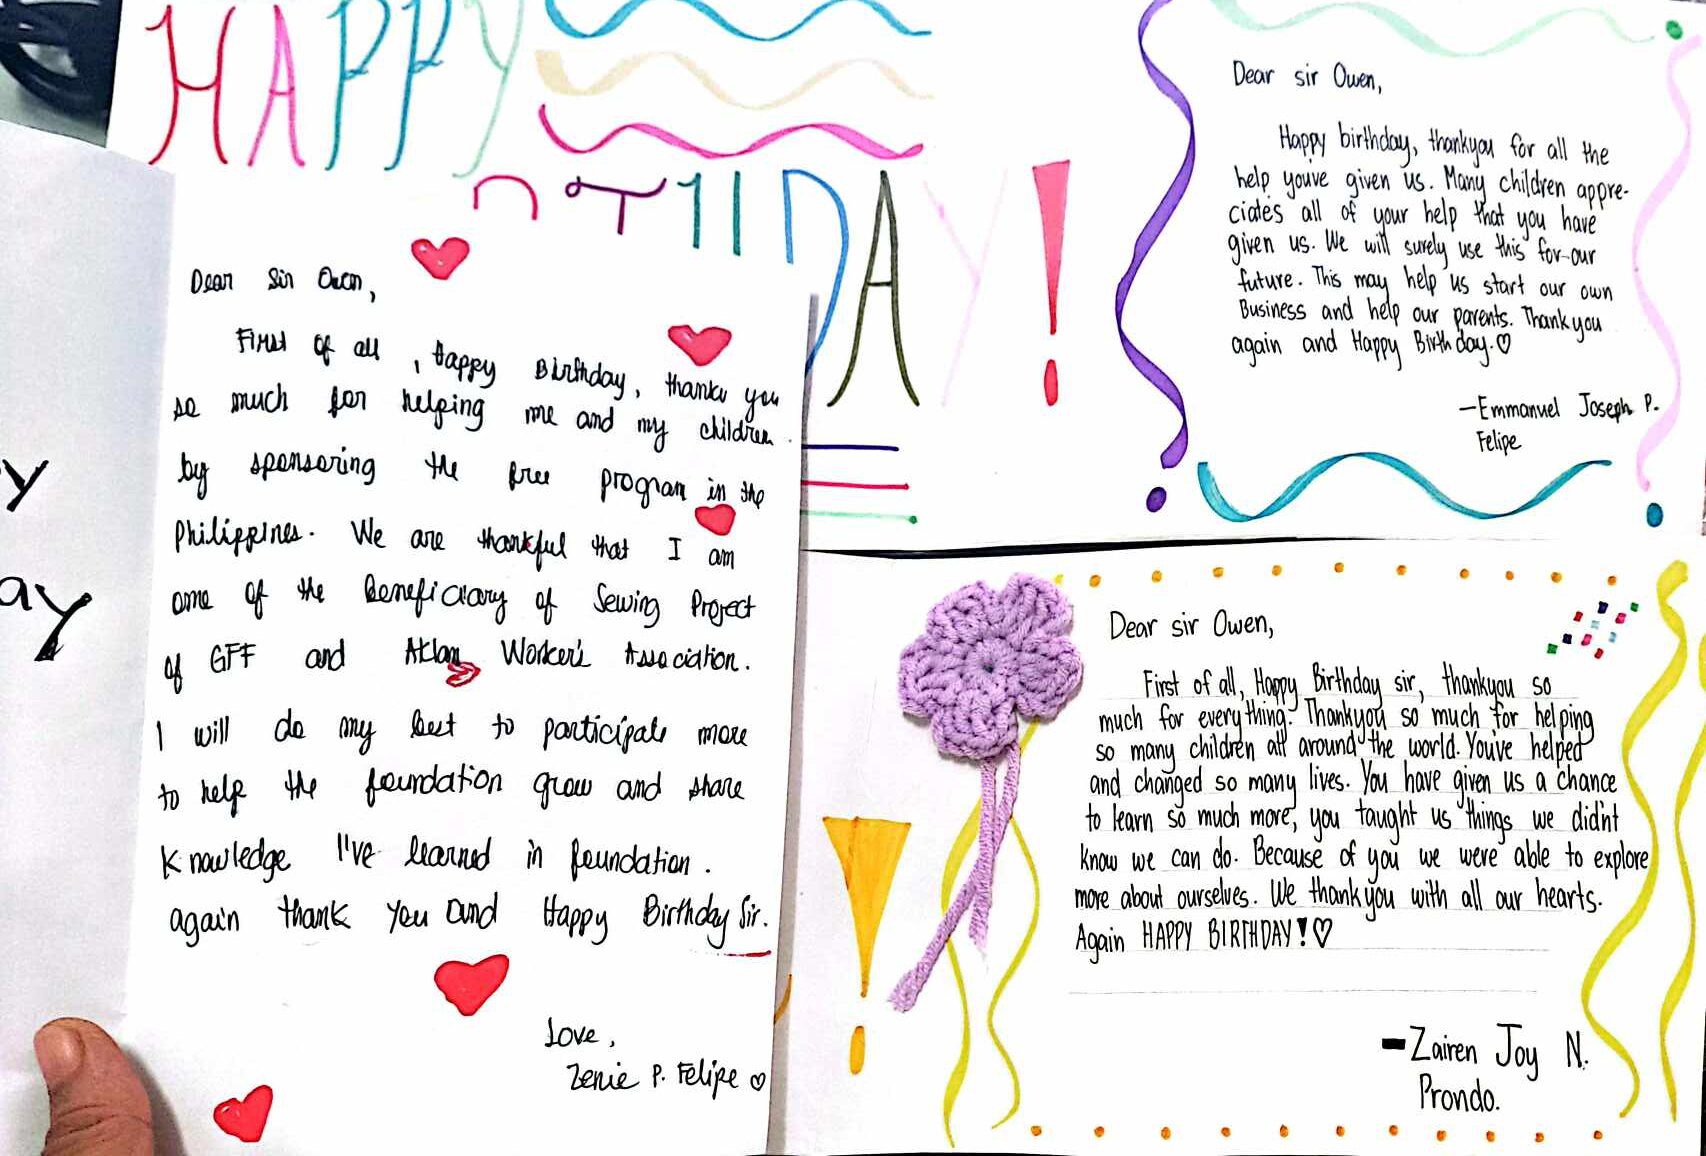 HAPPY
DAY!
y
ay
Dear Sir Owen,
First of all, Happy Birthday, thank you
so much for helping me and my children.
by sponsoring the free program in the
Philippines. We are thankful that I am
one of the Beneficiary of Sewing Project
of GFF and Aklan Worker's Association.
I will do my best to participate more
to help the foundation grow and share
Knowledge I've learned in foundation.
again thank you and Happy Birthday Sir.
Love,
Zenie P. Felipe
Dear sir Owen,
Happy birthday, thankyou for all the
help youve given us. Many children appre-
ciates all of your help that you have
given us. We will surely use this for our
future. This may help us start our own
Business and help our parents. Thankyou
again and Happy Birthday.♡
—Emmanuel Joseph P.
Felipe
Dear sir Owen,
First of all, Happy Birthday sir, thankyou so
much for everything. Thankyou so much for helping
so many children all around the world. You've helped
and changed so many lives. You have given us a chance
to learn so much more, you taught us things we didn't
know we can do. Because of you we were able to explore
more about ourselves. We thankyou with all our hearts.
Again HAPPY BIRTHDAY!♡
—Zairen Joy N.
Prondo.